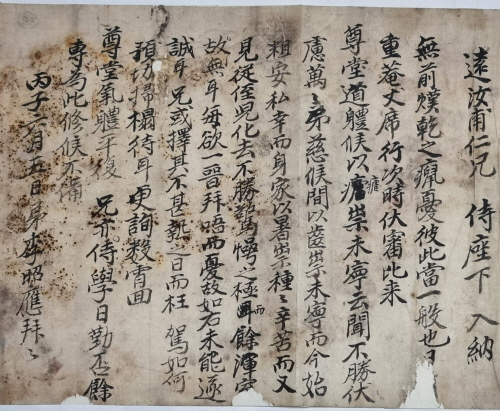 遠汝甫仁兄 侍座下 入納
無前熯乾之痛憂彼此當一般也日
重菴丈席 行次時伏審比來
尊堂道體候以瘧祟未寧云聞不勝伏
慮萬萬弟慈候間以齒祟未寧而今始
粗安私幸而身家以暑祟種種辛苦而又
見從侄兒化去不勝驚愕之極而餘渾宅
故無耳每欲一晉拜唔而憂故如右未能遂
誠耳兄或擇其不甚熱之日而枉 駕如何
預切掃榻待耳更詢數宵回
尊堂氣體平復 兄亦侍學日勤否餘
專為此修候不備
丙子六月五日弟李昭應拜拜